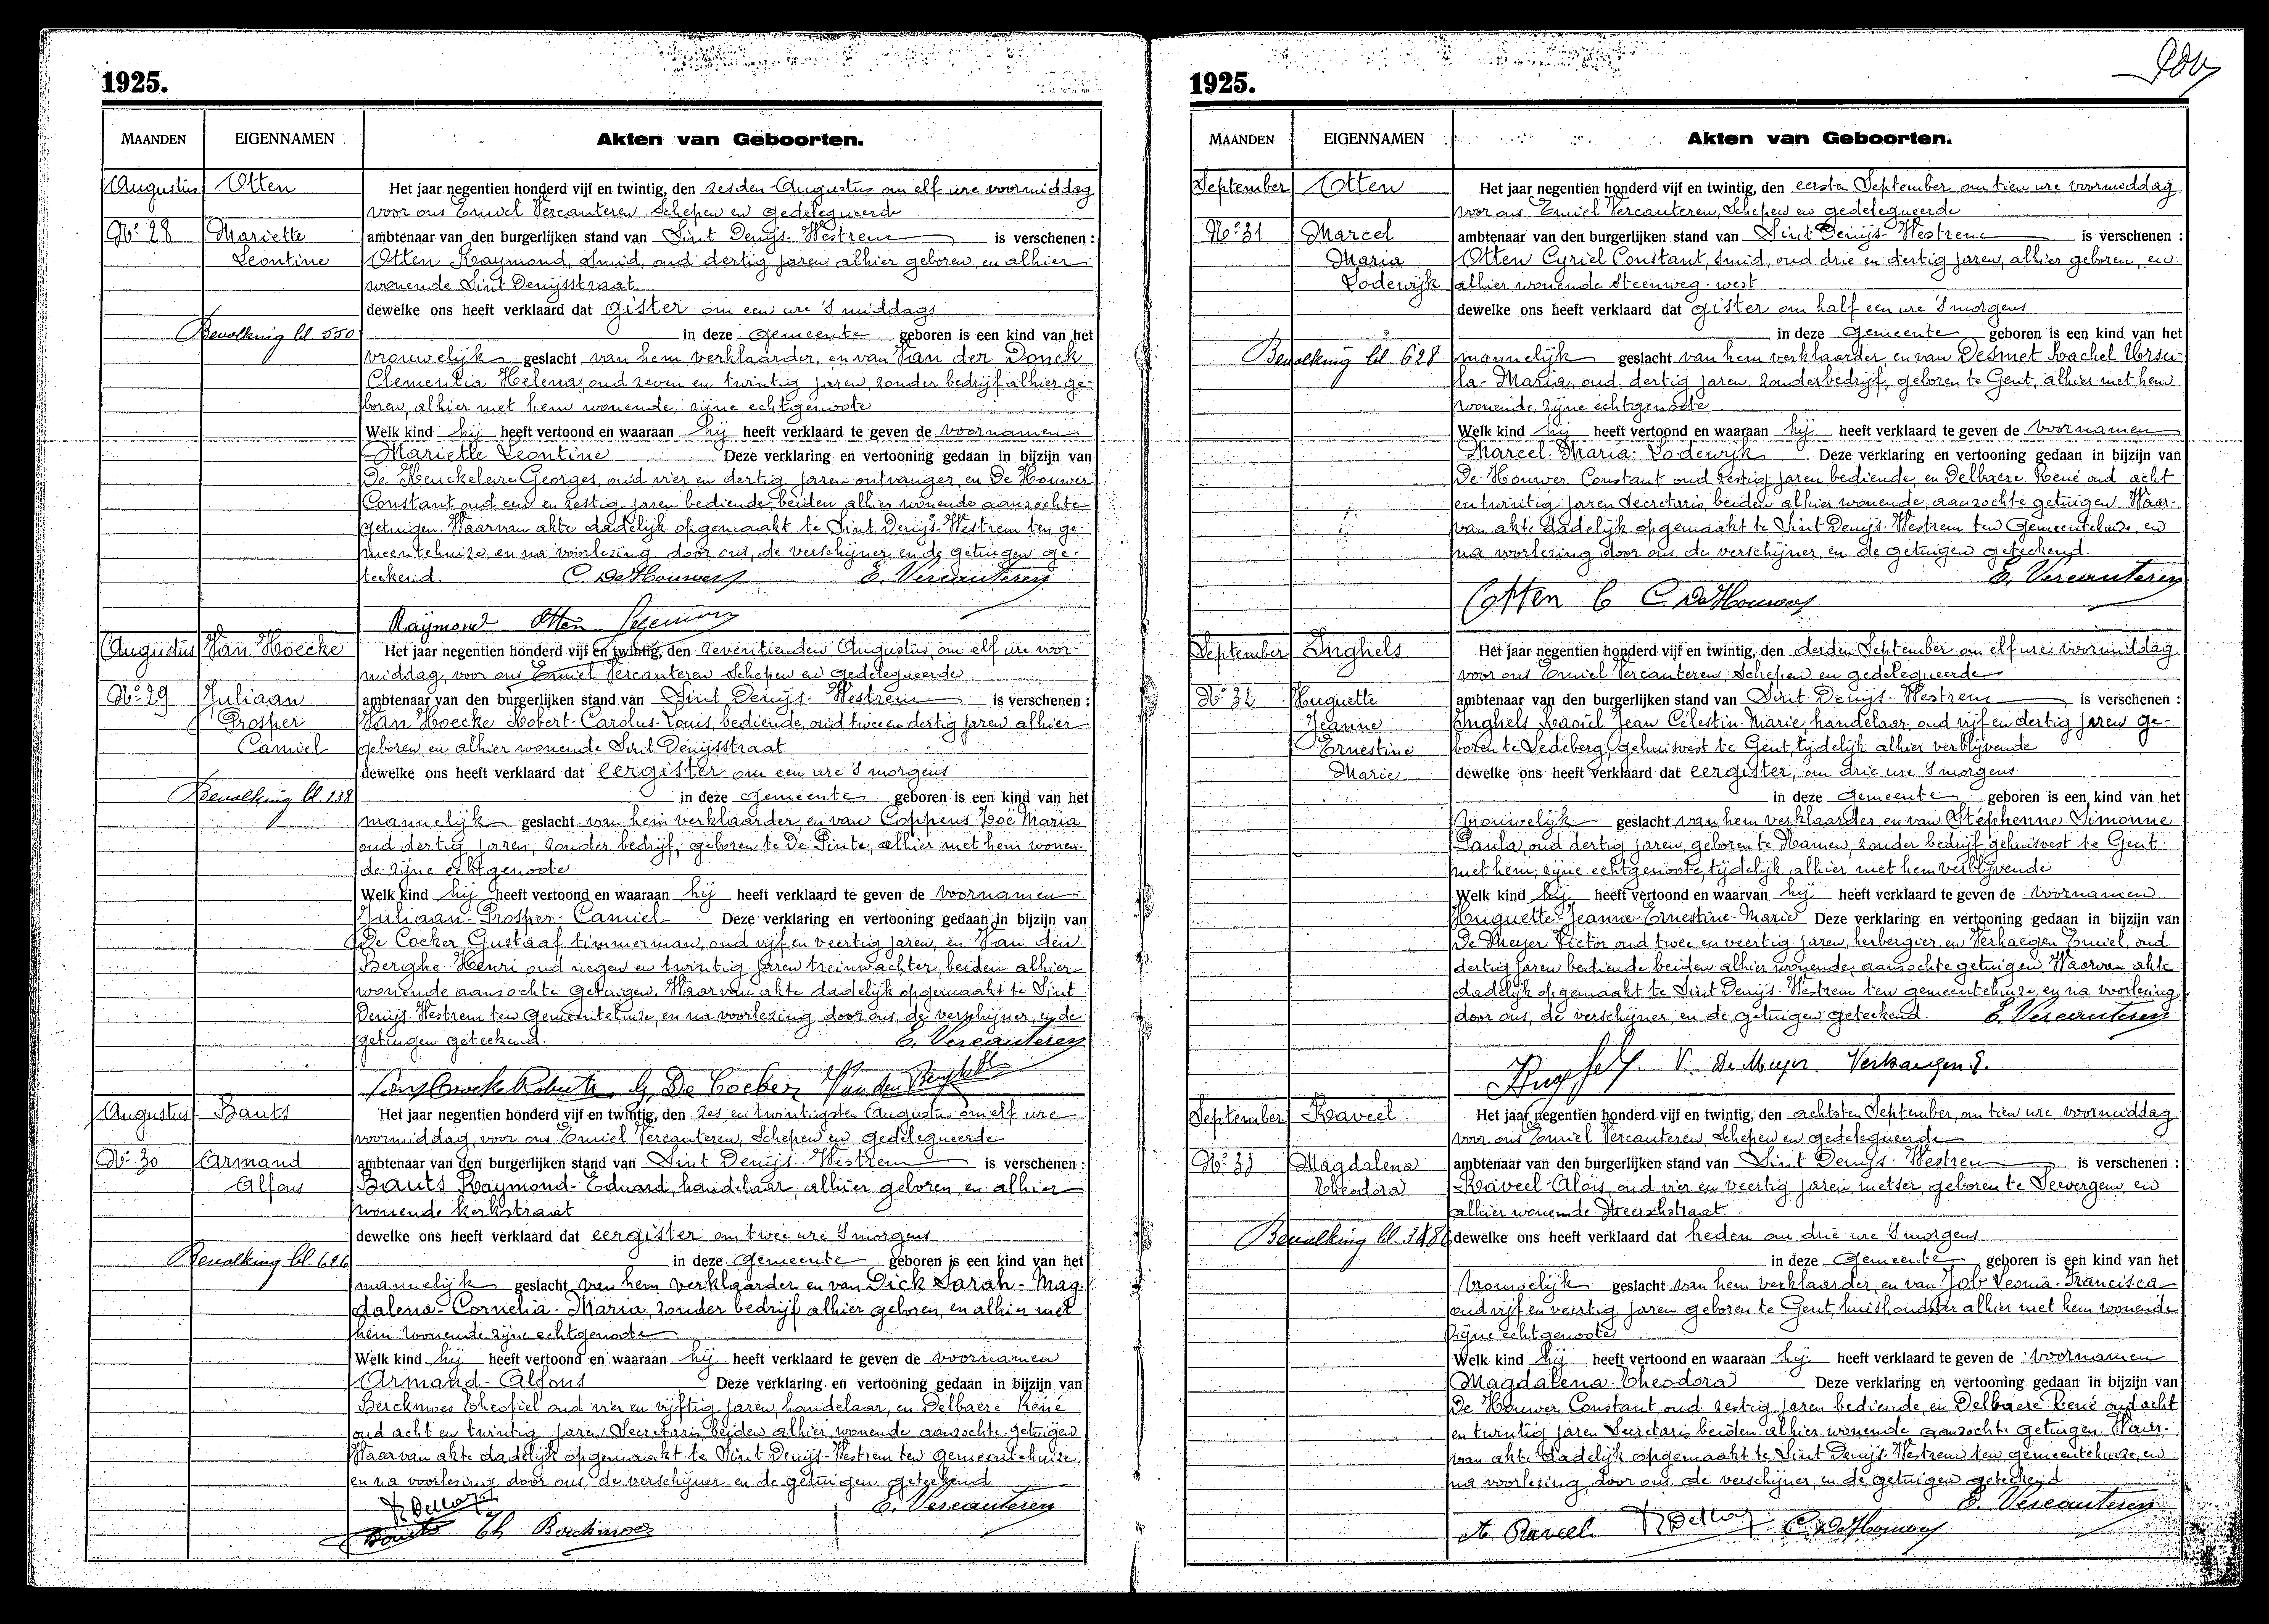 1925.
MAANDEN EIGENNAMEN Akten van Geboorten.
Augustus Otten
Nº 28 Mariette
Leontine
Bevolking bl. 550
Het jaar negentien honderd vijf en twintig, den zesden Augustus om elf ure voormiddag
voor ons Emiel Vercauteren Schepen en gedelegueerde
ambtenaar van den burgerlijken stand van Sint Denijs-Westrem is verschenen :
Otten Raymond, Smid, oud dertig jaren alhier geboren, en alhier
wonende Sint Denijsstraat
dewelke ons heeft verklaard dat gister om een ure 's middags
in deze Gemeente geboren is een kind van het
vrouwelijk geslacht van hem verklaarder, en van Van der Donck
Clementia Helena, oud zeven en twintig jaren, zonder bedrijf alhier ge-
boren, alhier met hem wonende, zijne echtgenoote
Welk kind hij heeft vertoond en waaraan hij heeft verklaard te geven de voornamen
Mariette Leontine Deze verklaring en vertooning gedaan in bijzijn van
De Keuckeleire Georges, oud vier en dertig jaren ontvanger, en De Houwer
Constant oud een en zestig jaren bediende, beiden alhier wonende aanzochte
getuigen. Waarvan akte dadelijk opgemaakt te Sint Denijs-Westrem ten ge-
meentehuize, en na voorlezing door ons, de verschijner en de getuigen ge-
teekend. C. De Houwer E. Vercauteren
Raymond Otten
Augustus Van Hoecke
Nº 29 Juliaan
Prosper
Camiel
Bevolking bl. 238
Het jaar negentien honderd vijf en twintig, den zeventienden Augustus, om elf ure voor-
middag, voor ons Emiel Vercauteren Schepen en gedelegueerde
ambtenaar van den burgerlijken stand van Sint Denijs-Westrem is verschenen :
Van Hoecke Robert-Carolus-Louis, bediende, oud twee en dertig jaren alhier
geboren, en alhier wonende Sint Denijsstraat
dewelke ons heeft verklaard dat eergister om een ure 's morgens
in deze Gemeente geboren is een kind van het
mannelijk geslacht van hem verklaarder, en van Coppens Zoë Maria
oud dertig jaren, zonder bedrijf, geboren te De Pinte, alhier met hem wonen-
de zijne echtgenoote
Welk kind hij heeft vertoond en waaraan hij heeft verklaard te geven de voornamen
Juliaan-Prosper-Camiel Deze verklaring en vertooning gedaan in bijzijn van
De Cocker Gustaaf timmerman, oud vijf en veertig jaren, en Van den
Berghe Henri oud negen en twintig jaren treinwachter, beiden alhier
wonende aanzochte getuigen. Waarvan akte dadelijk opgemaakt te Sint
Denijs-Westrem ten Gemeentehuize, en na voorlezing door ons, de verschijner, en de
getuigen geteekend. E. Vercauteren
G. De Cocker Van den Berghe H
Augustus Bauts
Nº 30 Armand
Alfons
Bevolking bl. 626
Het jaar negentien honderd vijf en twintig, den zes en twintigsten Augustus om elf ure
voormiddag, voor ons Emiel Vercauteren, Schepen en gedelegueerde
ambtenaar van den burgerlijken stand van Sint Denijs-Westrem is verschenen :
Bauts Raymond-Eduard, handelaar, alhier geboren, en alhier
wonende Kerkstraat
dewelke ons heeft verklaard dat eergister om twee ure 's morgens
in deze Gemeente geboren is een kind van het
mannelijk geslacht van hem verklaarder en van Dick Sarah-Mag-
dalena-Cornelia-Maria, zonder bedrijf alhier geboren, en alhier met
hem wonende zijne echtgenoote
Welk kind hij heeft vertoond en waaraan hij heeft verklaard te geven de voornamen
Armand-Alfons Deze verklaring en vertooning gedaan in bijzijn van
Berckmoes Theofiel oud vier en vijftig jaren, handelaar, en Delbaere René
oud acht en twintig jaren Secretaris, beiden alhier wonende aanzochte getuigen
Waarvan akte dadelijk opgemaakt te Sint Denijs-Westrem ten Gemeentehuize
en na voorlezing door ons, de verschijner en de getuigen geteekend
E. Vercauteren
Bauts Th Berckmoes
1925.
MAANDEN EIGENNAMEN Akten van Geboorten.
September Otten
Nº 31 Marcel
Maria
Lodewijk
Bevolking bl. 628
Het jaar negentien honderd vijf en twintig, den eersten September om tien ure voormiddag
voor ons Emiel Vercauteren, Schepen en gedelegueerde
ambtenaar van den burgerlijken stand van Sint Denijs-Westrem is verschenen :
Otten Cyriel Constant, smid, oud drie en dertig jaren, alhier geboren, en
alhier wonende Steenweg-west
dewelke ons heeft verklaard dat gister om half een ure 's morgens
in deze Gemeente geboren is een kind van het
mannelijk geslacht van hem verklaarder en van Desmet Rachel Ursu-
la-Maria, oud dertig jaren, zonder bedrijf, geboren te Gent, alhier met hem
wonende, zijne echtgenoote
Welk kind hij heeft vertoond en waaraan hij heeft verklaard te geven de voornamen
Marcel-Maria-Lodewijk Deze verklaring en vertooning gedaan in bijzijn van
De Houwer Constant oud zestig jaren bediende, en Delbaere René oud acht
en twintig jaren Secretaris, beiden alhier wonende, aanzochte getuigen Waar-
van akte dadelijk opgemaakt te Sint Denijs-Westrem ten Gemeentehuize, en
na voorlezing door ons, de verschijner, en de getuigen geteekend.
E. Vercauteren
Otten C C. De Houwer
September Inghels
Nº 32 Huguette
Jeanne
Ernestine
Marie
Het jaar negentien honderd vijf en twintig, den derden September om elf ure voormiddag
voor ons Emiel Vercauteren, Schepen en gedelegueerde
ambtenaar van den burgerlijken stand van Sint Denijs-Westrem is verschenen :
Inghels Raoül Jean Célestin-Marie, handelaar, oud vijf en dertig jaren ge-
boren te Ledeberg, gehuisvest te Gent, tijdelijk alhier verblijvende
dewelke ons heeft verklaard dat eergister, om drie ure 's morgens
in deze Gemeente geboren is een kind van het
vrouwelijk geslacht van hem verklaarder, en van Stéphenne Simonne
Paula, oud dertig jaren, geboren te Namen, zonder bedrijf gehuisvest te Gent
met hem, zijne echtgenoote, tijdelijk alhier met hem verblijvende
Welk kind hij heeft vertoond en waarvan hij heeft verklaard te geven de voornamen
Huguette-Jeanne-Ernestine-Marie Deze verklaring en vertooning gedaan in bijzijn van
De Meyer Victor oud twee en veertig jaren, herbergier en Verhaegen Emiel, oud
dertig jaren bediende beiden alhier wonende, aanzochte getuigen Waarvan akte
dadelijk opgemaakt te Sint Denijs-Westrem ten gemeentehuize, en na voorlezing
door ons, de verschijner, en de getuigen geteekend. E. Vercauteren
V. De Meyer Verhaegen E.
September Raveel
Nº 33 Magdalena
Theodora
Bevolking bl.
Het jaar negentien honderd vijf en twintig, den achtsten September, om tien ure voormiddag
voor ons Emiel Vercauteren, Schepen en gedelegueerde
ambtenaar van den burgerlijken stand van Sint Denijs-Westrem is verschenen :
Raveel Aloïs, oud vier en veertig jaren, metser, geboren te Seevergem, en
alhier wonende Meerschstraat
dewelke ons heeft verklaard dat heden om drie ure 's morgens
in deze Gemeente geboren is een kind van het
vrouwelijk geslacht van hem verklaarder, en van Job Leonia-Francisca
oud vijf en veertig jaren geboren te Gent, huishoudster alhier met hem wonende
zijne echtgenoote
Welk kind hij heeft vertoond en waaraan hij heeft verklaard te geven de voornamen
Magdalena-Theodora Deze verklaring en vertooning gedaan in bijzijn van
De Houwer Constant, oud zestig jaren bediende, en Delbaere René oud acht
en twintig jaren Secretaris beiden alhier wonende aanzochte getuigen. Waar-
van akte dadelijk opgemaakt te Sint Denijs-Westrem ten gemeentehuize, en
na voorlezing door ons, de verschijner, en de getuigen geteekend
E. Vercauteren
A Raveel C. De Houwer